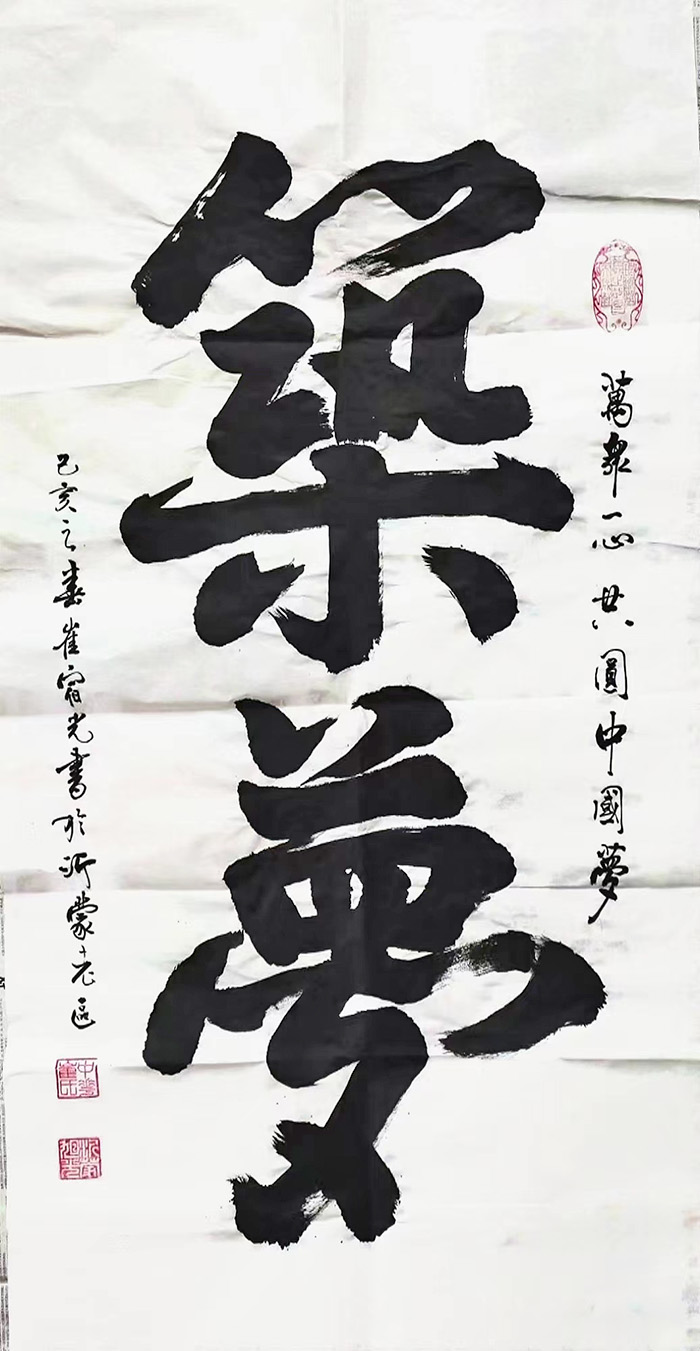 萬眾一心共圓中國夢
築夢
己亥之春崔宿光書於沂蒙老區
中華崔氏